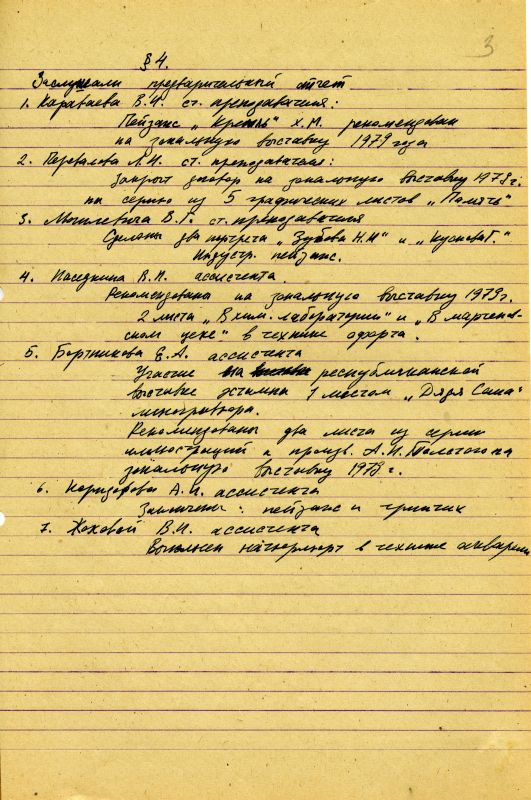 3
§ 4.
Заслушали предварительный отчет
1. Караваева В.И. ст. преподавателя:
Пейзаж „Кремль" х.м. рекомендован
на зональную выставку 1979 года
2. Перевалова Л.И. ст. преподавателя:
Закрыт договор на зональную выставку 1979 г.
на серию из 5 графических листов „Память"
3. В.Г. ст. преподавателя
Сделаны два портрета „Зубова Н.И" и
Индустр. пейзаж.
4. В.И. ассистента.
Рекомендованы на зональную выставку 1979 г.
2 листа „В хим. лаборатории" и „В мартенов-
ском цехе" в технике офорта.
5. Бортникова Е.А. ассистента
Участие на республиканской
выставке эстампа 1 листом „Дядя Саша"
линогравюра.
Рекомендованы два листа из серии
иллюстраций к произв. А.Н. Толстого на
зональную выставку 1979 г.
6. А.И. ассистента
Закончены: пейзаж и
7. Жоховой В.И. ассистента
Выполнен натюрморт в технике акварели